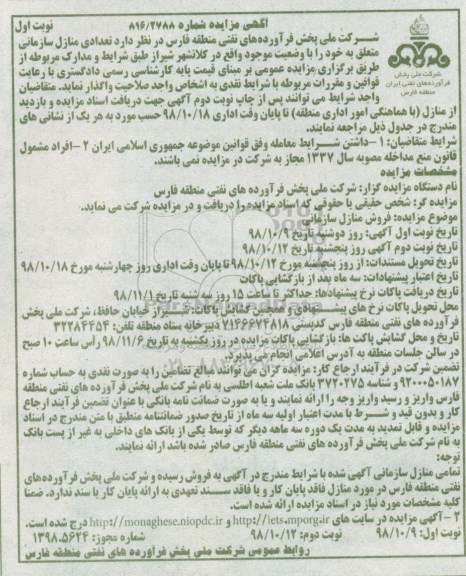 آگهی مزایده شماره ۸۱۶/۲۷۸۸
نوبت اول
شرکت ملی پخش فرآورده‌های نفتی منطقه فارس در نظر دارد تعدادی منازل سازمانی
متعلق به خود را با وضعیت موجود واقع در کلانشهر شیراز طبق شرایط و مدارک مربوطه از
طریق برگزاری مزایده عمومی بر مبنای قیمت پایه کارشناسی رسمی دادگستری با رعایت
قوانین و مقررات مربوطه با شرایط نقدی به اشخاص واجد صلاحیت واگذار نماید. متقاضیان
واجد شرایط می توانند پس از چاپ نوبت دوم آگهی جهت دریافت اسناد مزایده و بازدید
شرکت ملی پخش
فرآورده‌های نفتی ایران
منطقه فارس
از منازل (با هماهنگی امور اداری منطقه) تا پایان وقت اداری ۹۸/۱۰/۱۸ حسب مورد به هر یک از نشانی های
مندرج در جدول ذیل مراجعه نمایند.
شرایط متقاضیان: ۱ -داشتن شرایط معامله وفق قوانین موضوعه جمهوری اسلامی ایران ۲ -افراد مشمول
قانون منع مداخله مصوبه سال ۱۳۳۷ مجاز به شرکت در مزایده نمی باشند.
مشخصات مزایده
نام دستگاه مزایده گزار: شرکت ملی پخش فرآورده های نفتی منطقه فارس
مزایده گر: شخص حقیقی یا حقوقی که اسناد مزایده را دریافت و در مزایده شرکت می نماید.
موضوع مزایده: فروش منازل سازمانی
تاریخ نوبت اول آگهی: روز دوشنبه تاریخ ۹۸/۱۰/۹
تاریخ نوبت دوم آگهی روز پنجشنبه تاریخ ۹۸/۱۰/۱۲
تاریخ تحویل مستندات: از روز پنجشنبه مورخ ۹۸/۱۰/۱۲ تا پایان وقت اداری روز چهارشنبه مورخ ۹۸/۱۰/۱۸
تاریخ اعتبار پیشنهادات: سه ماه بعد از بازگشایی پاکات
تاریخ دریافت پاکات نرخ پیشنهادها: حداکثر تا ساعت ۱۵ روز سه شنبه تاریخ ۹۸/۱۱/۱
محل تحویل پاکات نرخ های پیشنهادی و همچنین گشایش پاکات: شیراز خیابان حافظ، شرکت ملی پخش
فرآورده های نفتی منطقه فارس کدپستی ۷۱۴۶۶۷۴۸۱۸ دبیرخانه ستاد منطقه تلفن: ۳۲۲۸۴۴۵۴
تاریخ و محل گشایش پاکت ها: بازگشایی پاکات مزایده در روز یکشنبه به تاریخ ۹۸/۱۱/۶ رأس ساعت ۱۰ صبح
در سالن جلسات منطقه به آدرس اعلامی انجام می پذیرد.
تضمین شرکت در فرآیند ارجاع کار: مزایده گران می توانند مبالغ تضامین را به صورت نقدی به حساب شماره
۹۲۰۰۰۵۰۱۸۷ و شناسه ۳۷۲۰۲۷۵ بانک ملت شعبه اطلسی به نام شرکت ملی پخش فرآورده های نفتی منطقه
فارس واریز و رسید واریز وجه را ارائه نمایند و یا به صورت ضمانت نامه بانکی با عنوان تضمین فرآیند ارجاع
کار و بدون قید و شرط با مدت اعتبار اولیه سه ماه از تاریخ صدور ضمانتنامه منطبق با متن مندرج در اسناد
مزایده و قابل تمدید به مدت یک دوره سه ماهه دیگر که توسط یکی از بانک های داخلی به غیر از پست بانک
به نام شرکت ملی پخش فرآورده های نفتی منطقه فارس صادر شده باشد ارائه نمایند.
توجه:
تمامی منازل سازمانی آگهی شده با شرایط مندرج در آگهی به فروش رسیده و شرکت ملی پخش فرآورده‌های
نفتی منطقه فارس در مورد منازل فاقد پایان کار و یا فاقد سند تعهدی به ارائه پایان کار یا سند ندارد. ضمنا
کلیه مشخصات مورد نیاز در اسناد مزایده ارائه شده است.
۲ -آگهی مزایده در سایت های http://iets.mporg.ir و http://monaghese.niopdc.ir درج شده است.
نوبت اول: ۹۸/۱۰/۹ نوبت دوم: ۹۸/۱۰/۱۲ شماره مجوز: ۱۳۹۸.۵۶۲۴
روابط عمومی شرکت ملی پخش فرآورده های نفتی منطقه فارس